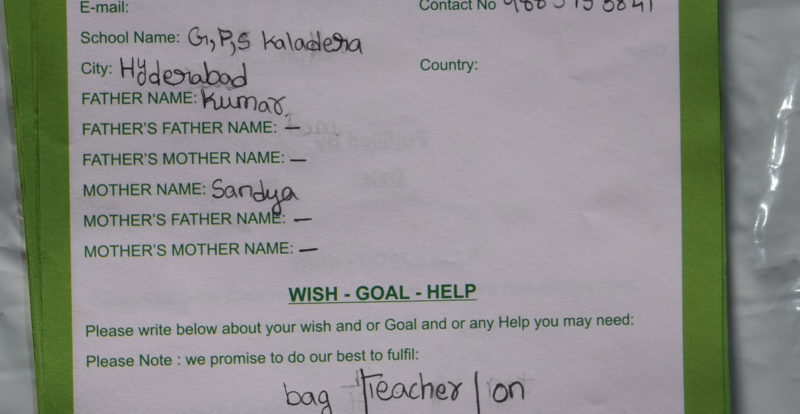 E-mail: Contact No
School Name: G,P,S Kaladera
City: Hyderabad Country:
FATHER NAME: Kumar
FATHER'S FATHER NAME: —
FATHER'S MOTHER NAME: —
MOTHER NAME: Sandya
MOTHER'S FATHER NAME: —
MOTHER'S MOTHER NAME: —
WISH - GOAL - HELP
Please write below about your wish and or Goal and or any Help you may need:
Please Note : we promise to do our best to fulfil:
bag Teacher on